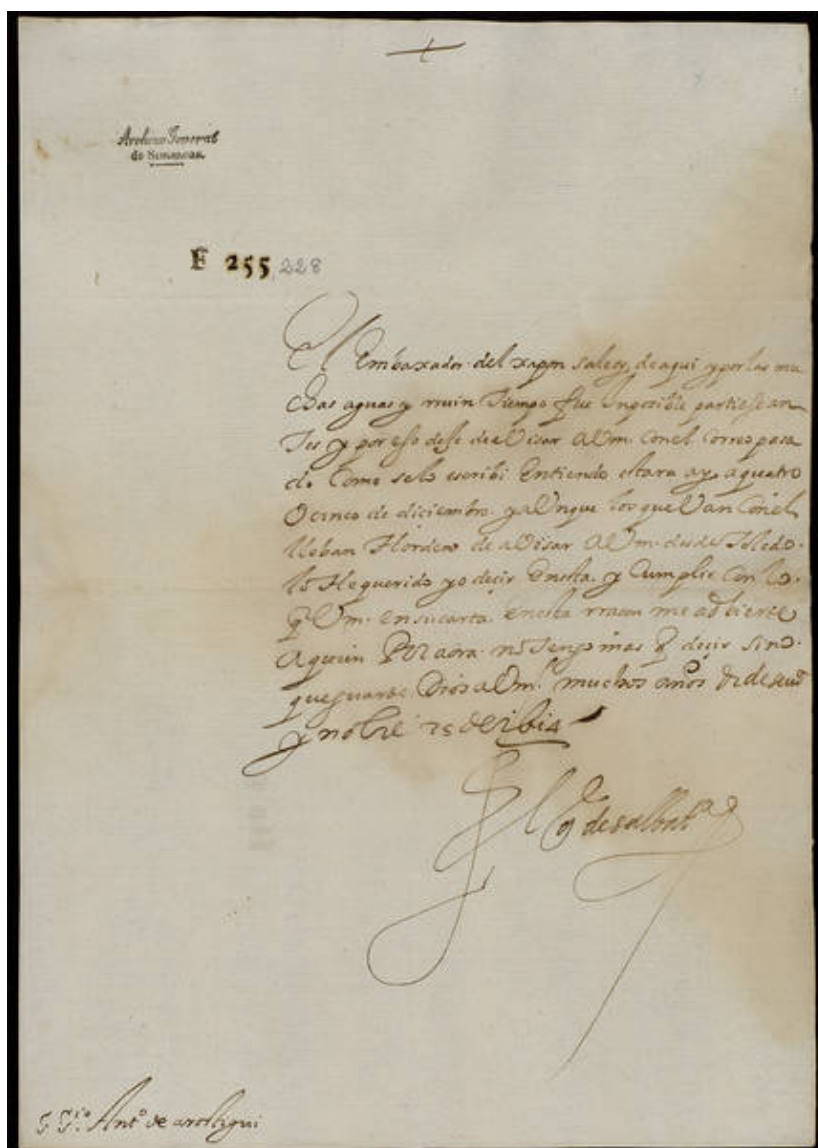 Archivo General
de Simancas
E 255 228
El Embaxador del xapon sale oy de aqui y por las mu
chas aguas y rruin tiempo fue Inposible partiese an
tes y por eso dese de aVisar a Vm. Con el Correo pasa
do Como se lo escribi Entiendo estara ay a quatro
O cinco de diciembre y aUnque los que Van Con el
lleban Horden de aVisar a Vm. desde Toledo
lo He querido yo decir En esta y Cumplir Con lo
q Vm. en su carta en esta rraçon me adbierte
A quien Por aora no Tengo mas q decir sino
que guarde Dios a Vm. muchos años De Seuª
y nobre 25 de 1614
El de salbatª
Antº de arostigui